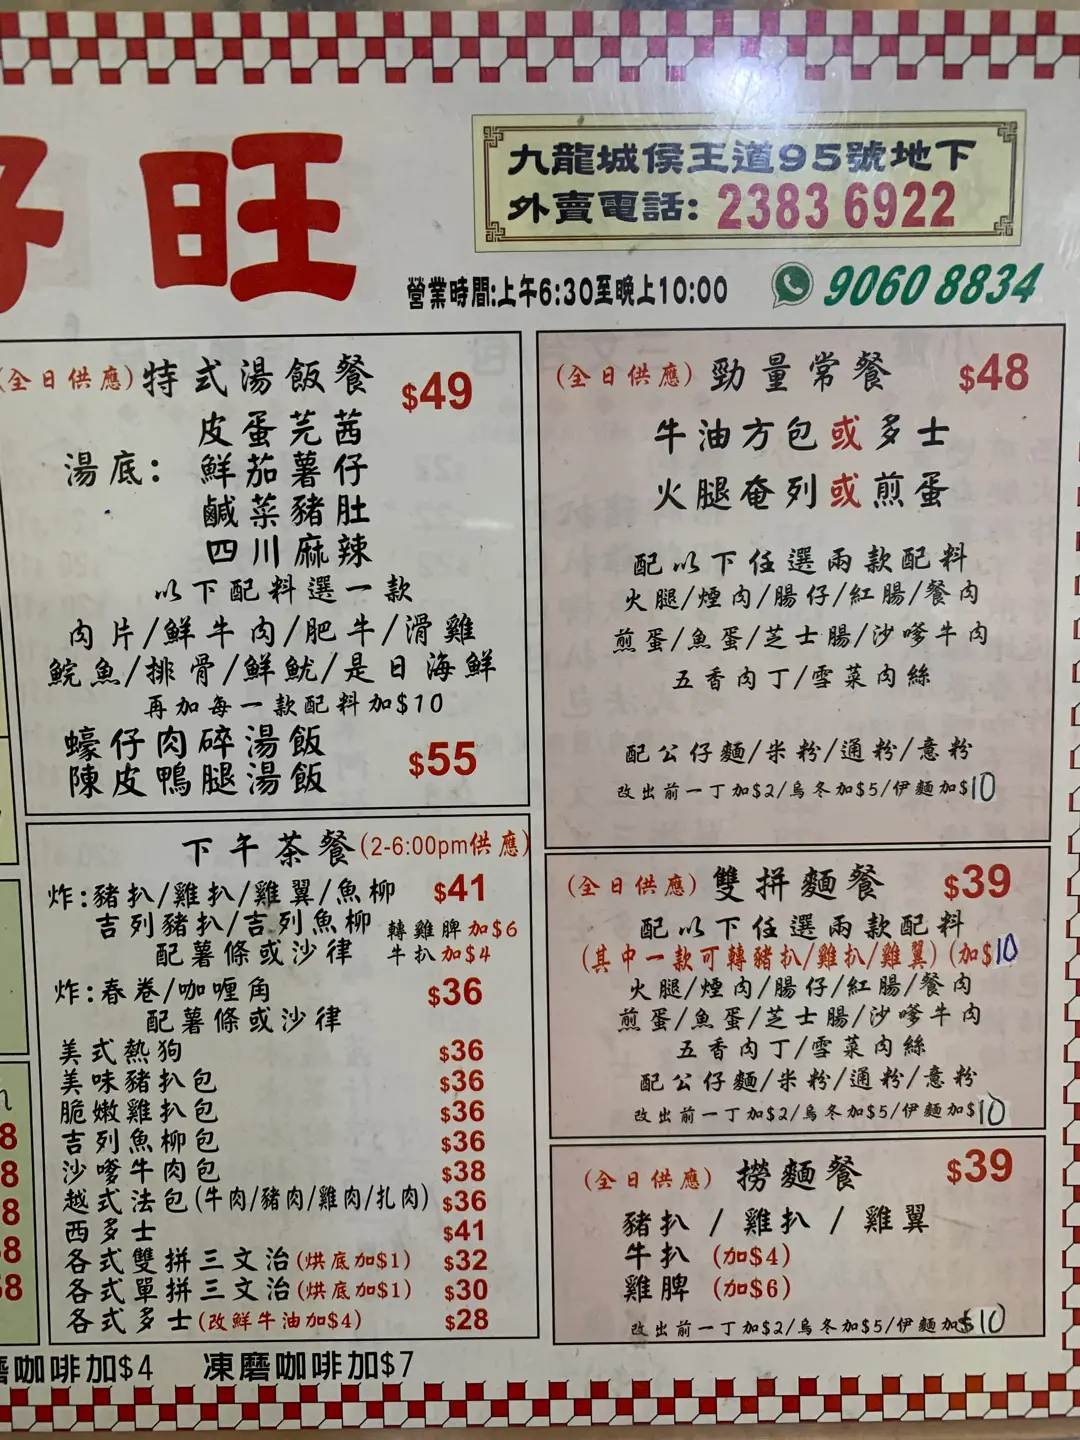 好旺
九龍城侯王道95號地下
外賣電話: 2383 6922
營業時間:上午6:30至晚上10:00
9060 8834
(全日供應) 特式湯飯餐 $49
皮蛋芫茜
湯底: 鮮茄薯仔
鹹菜豬肚
四川麻辣
以下配料選一款
肉片/鮮牛肉/肥牛/滑雞
鯇魚/排骨/鮮魷/是日海鮮
再加每一款配料加$10
蠔仔肉碎湯飯
陳皮鴨腿湯飯 $55
下午茶餐(2-6:00pm供應)
炸:豬扒/雞扒/雞翼/魚柳 $41
吉列豬扒/吉列魚柳 轉雞脾加$6
配薯條或沙律 牛扒加$4
炸:春卷/咖喱角 $36
配薯條或沙律
美式熱狗 $36
美味豬扒包 $36
脆嫩雞扒包 $36
吉列魚柳包 $36
沙嗲牛肉包 $38
越式法包(牛肉/豬肉/雞肉/扎肉) $36
西多士 $41
各式雙拼三文治(烘底加$1) $32
各式單拼三文治(烘底加$1) $30
各式多士(改鮮牛油加$4) $28
(全日供應) 勁量常餐 $48
牛油方包或多士
火腿奄列或煎蛋
配以下任選兩款配料
火腿/煙肉/腸仔/紅腸/餐肉
煎蛋/魚蛋/芝士腸/沙嗲牛肉
五香肉丁/雪菜肉絲
配公仔麵/米粉/通粉/意粉
改出前一丁加$2/烏冬加$5/伊麵加$10
(全日供應) 雙拼麵餐 $39
配以下任選兩款配料
(其中一款可轉豬扒/雞扒/雞翼)(加$10
火腿/煙肉/腸仔/紅腸/餐肉
煎蛋/魚蛋/芝士腸/沙嗲牛肉
五香肉丁/雪菜肉絲
配公仔麵/米粉/通粉/意粉
改出前一丁加$2/烏冬加$5/伊麵加$10
(全日供應) 撈麵餐 $39
豬扒 / 雞扒 / 雞翼
牛扒 (加$4)
雞脾 (加$6)
改出前一丁加$2/烏冬加$5/伊麵加$10
磨咖啡加$4 凍磨咖啡加$7